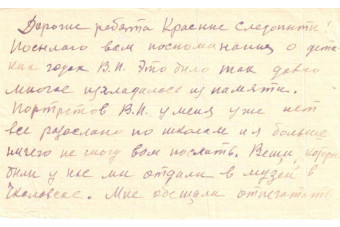 Дорогие ребята Красные Следопыты!
Посылаю вам воспоминания о детс-
ких годах В.П. Это было так давно
многое изгладилось из памяти.
Портретов В.П. у меня уже нет
все разослано по школам и я больше
ничего не могу вам послать. Вещи, котор
были у нас мы отдали в музей в
Чкаловское. Мне обещали отпечатать